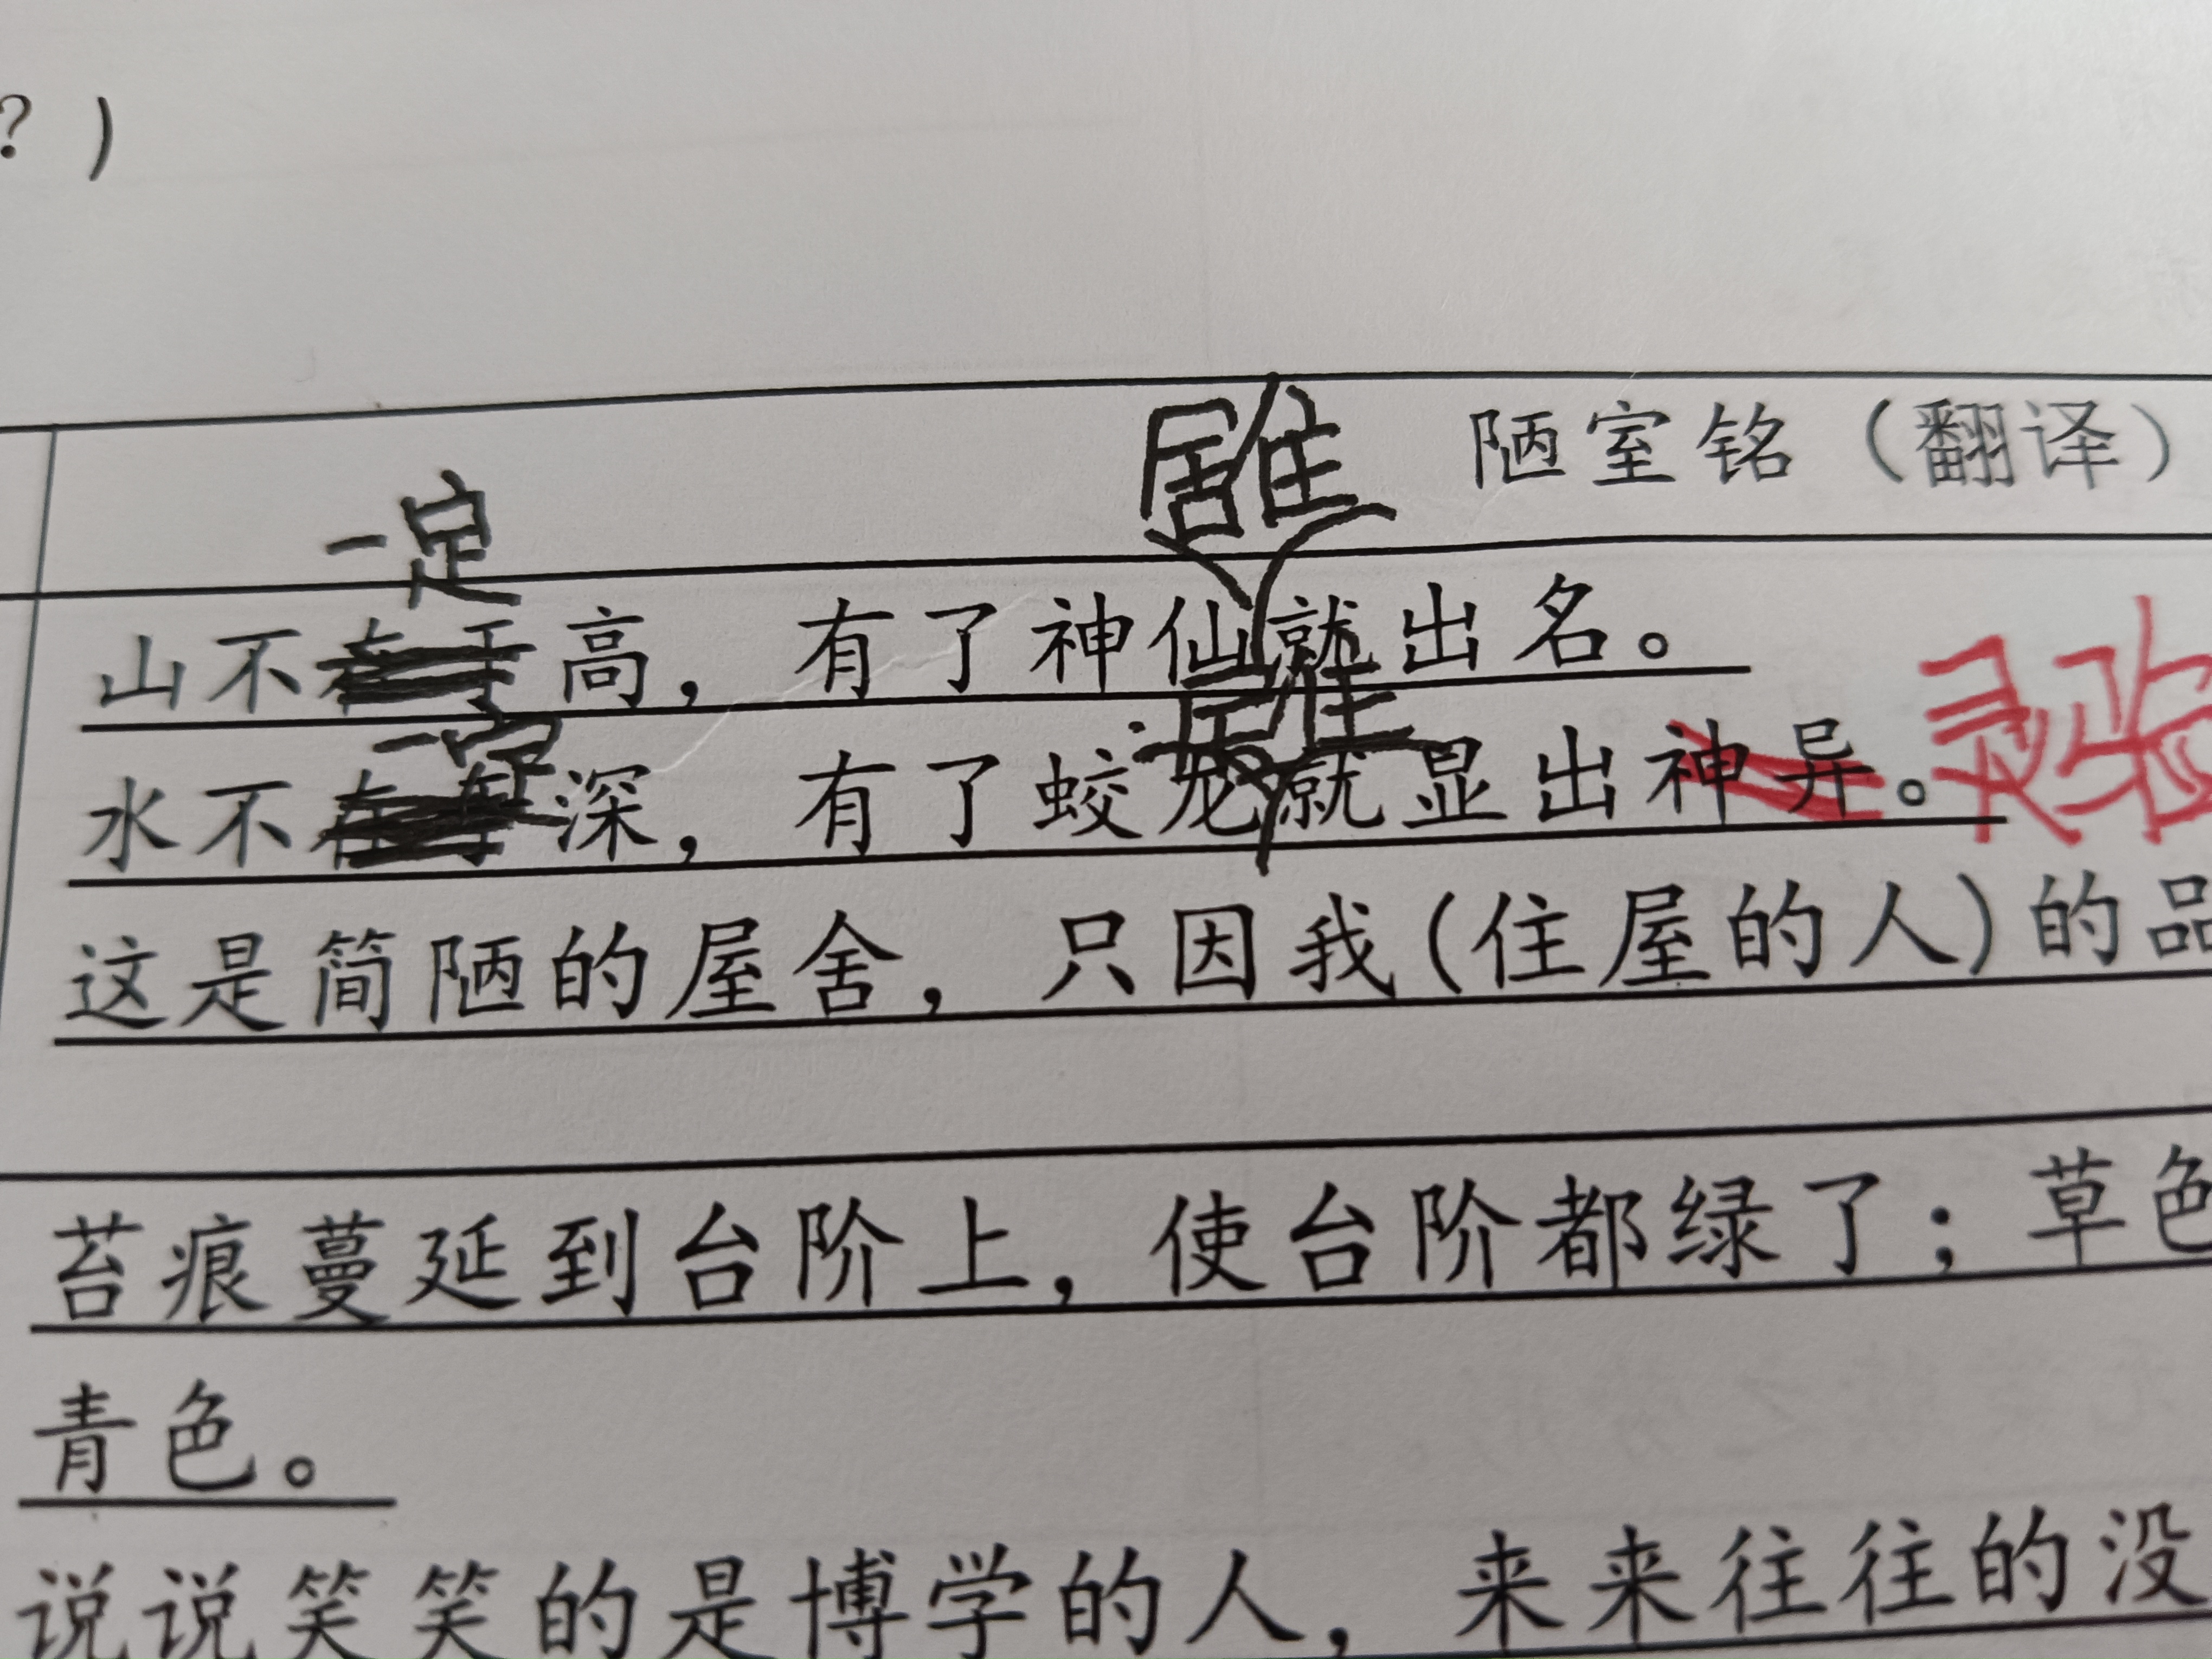 ？）
陋室铭（翻译）
居住
一定
山不在于高，有了神仙就出名。
居住
一定
水不在于深，有了蛟龙就显出神异。灵
这是简陋的屋舍，只因我(住屋的人)的品
苔痕蔓延到台阶上，使台阶都绿了；草色
青色。
说说笑笑的是博学的人，来来往往的没